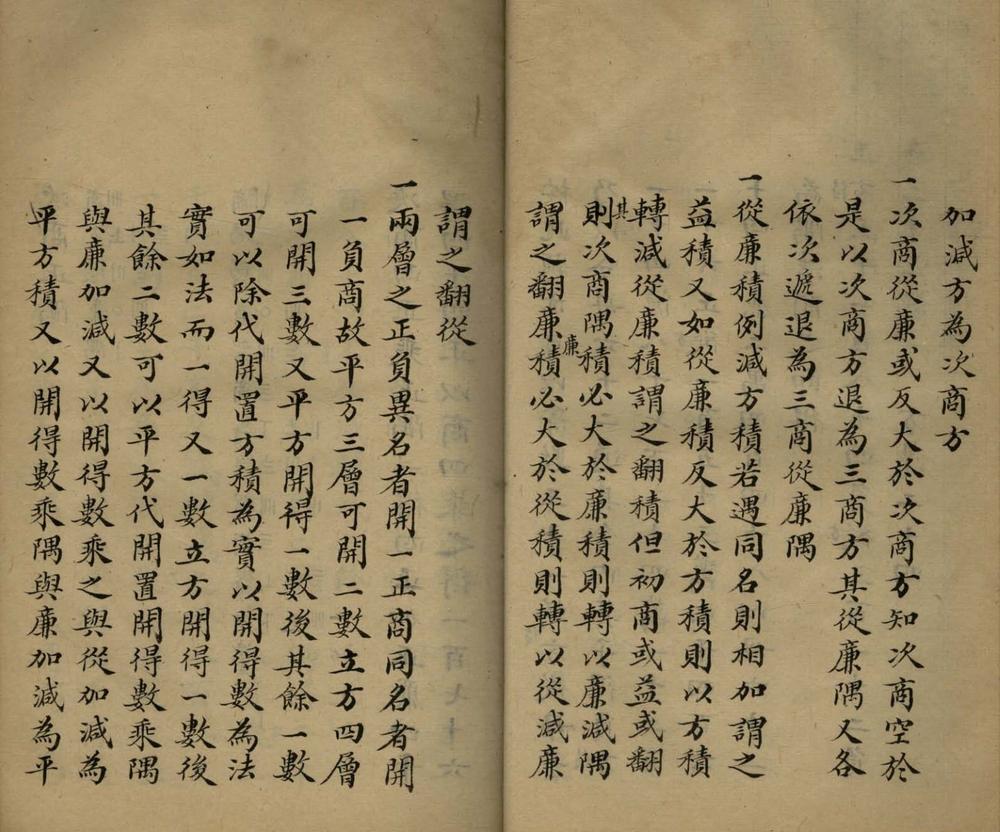 加減方為次商方
一次商從廉或反大於次商方知次商空於
是以次商方退為三商方其從廉隅又各
依次遞退為三商從廉隅
一從廉積例減方積若遇同名則相加謂之
益積又如從廉積反大於方積則以方積
轉減從廉積謂之翻積但初商或益或翻
其
則次商隅積必大於廉積則轉以廉減隅
廉
謂之翻廉積必大於從積則轉以從減廉
謂之翻從
一兩層之正負異名者開一正商同名者開
一負商故平方三層可開二數立方四層
可開三數又平方開得一數後其餘一數
可以除代開置方積為實以開得數為法
實如法而一得又一數立方開得一數後
其餘二數可以平方代開置開得數乘隅
與廉加減又以開得數乘之與從加減為
平方積又以開得數乘隅與廉加減為平